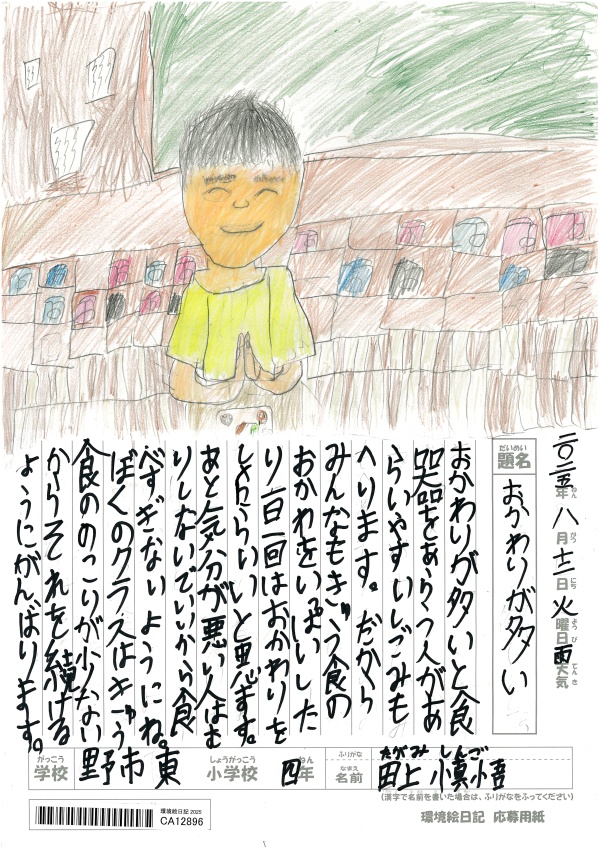 二〇二五年八月十二日火曜日雨天気
ねん がつ にち ようび てんき
だいめい
題名
おかわりが多い
おかわりが多いと食
器をあらう人があ
らいやすいしごみも
へります。だから
みんなもきゅう食の
おかわをいっぱいした
り一日一回はおかわりを
したらいいと思ます。
あと気分が悪い人はむ
りしないでいいから食
べすぎないようにね。
ぼくのクラスはきゅう
食ののこりが少ない
からそれを続ける
ようにがんばります。
がっこう
学校
野市東
しょうがっこう
小学校
四年
ねん
ふりがな
たがみ しんご
なまえ
名前
田上 慎悟
(漢字で名前を書いた場合は、ふりがなをふってください)
環境絵日記 2025
CA12896
環境絵日記 応募用紙